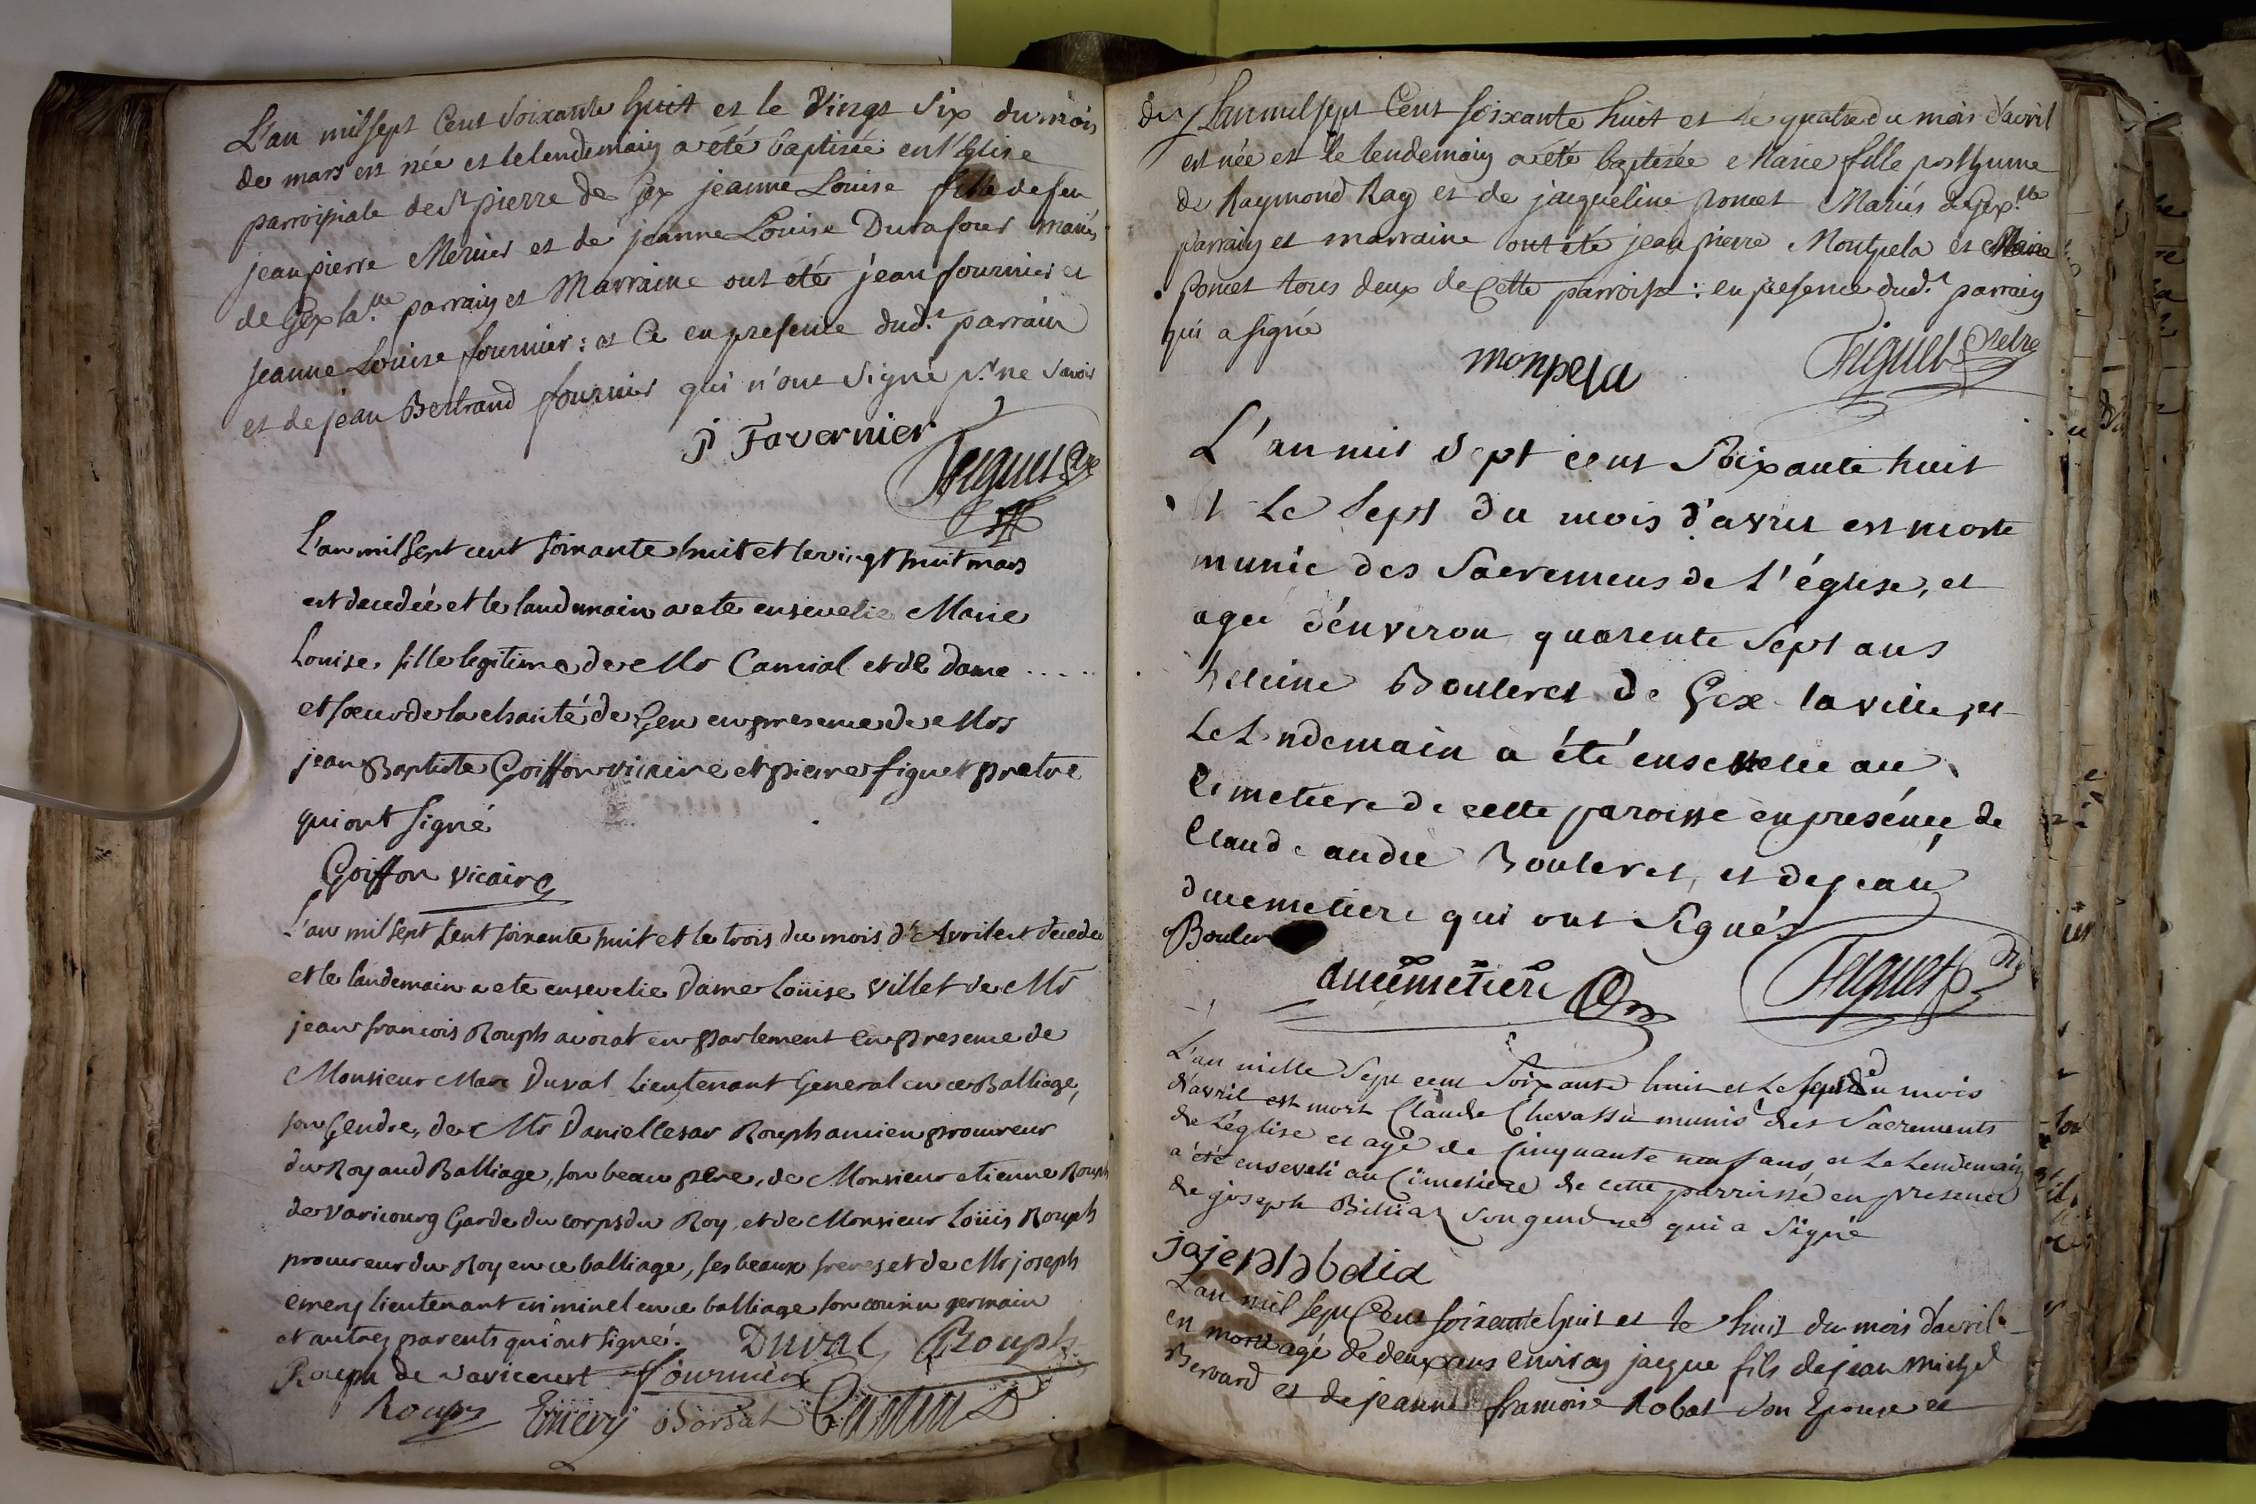 L'an mil sept Cent Soixante huit et le Vingt Six du mois
de mars est née et le lendemain a été baptisée en l'Eglise
parroissiale de St pierre de Gex jeanne Louise fille de feu
jean pierre Mernier et de jeanne Louise Durafour mariés
de Gex la ville parrain et Marraine ont été jean fournier et
jeanne Louise fournier : et Ce en presence dud.t parrain
et de jean Bertrand fournier qui n'ont signé pr ne savoir
j Favernier
Figuet ptre
L'an mil sept cent soixante huit et le vingt huit mars
est decedée et le landemain a ete ensevelie Marie
Louise, fille legitime de Mr Camial et de Dame . . . . .
et soeur de la charité de Gex en presence de Mrs
jean Baptiste Goiffon vicaire et pierre figuet pretre
qui ont signé
Goiffon vicaire
L'an mil sept sent soixante huit et le trois du mois d'Avril est decedee
et le landemain a ete ensevelie Dame Loüise Villet de Mr
jean francois Rouph avocat en parlement en presence de
Monsieur Marc Duval Lieutenant General en ce Balliage,
son Gendre, de Mr Daniel Cesar Rouph ancien procureur
du Roy aud Balliage, son beau pere, de Monsieur etienne Rouph
de Varicourg Garde du corps du Roy, et de Monsieur Loüis Rouph
procureur du Roy en ce balliage, ses beaux freres et de Mr joseph
emery lieutenant criminel en ce balliage son cousin germain
et autres parents qui ont signé.
Duval Rouph
Rouph de Varicourt fournier
Rouph Emery Borsat
L'an mil sept Cent soixante huit et le quatre du mois d'avril
est née et le lendemain a été baptisée Marie fille posthume
de Raymond Ray et de jacqueline poncet Mariés de Gex la ville
parrain et marraine ont été jean pierre Montpela et Marie
poncet tous deux de Cette parroisse : en presence dud.t parrain
qui a signé
monpela Figuet Pretre
L'an mil sept cent Soixante huit
et Le sept du mois d'avril est morte
munie des Sacremens de l'église, et
agée d'environ quarente sept ans
heleine Bouleret de Gex la ville, et
Le Lendemain a été ensevelie au
Cimetiere de cette paroisse en présence de
Claude andré Bouleret, et de jean
ducemetiere qui ont Signés
Bouler
ducemetiere Figuet ptre
L'an mille Sept cent Soixante huit et Le sept du mois
d'avril est mort Claude Chevassu munis des Sacrements
de L'église et agé de Cinquante neuf ans, et Le Lendemain
a été enseveli au Cimetiere de cette parroisse en presence
de joseph Billiaz son gendre qui a Signé
L'an mil sept Cent soixante huit et le huit du mois d'avril
est mort agé de deux ans environ jacque fils de jean michel
Bernard et de jeanne francoise Robat son Epouse et